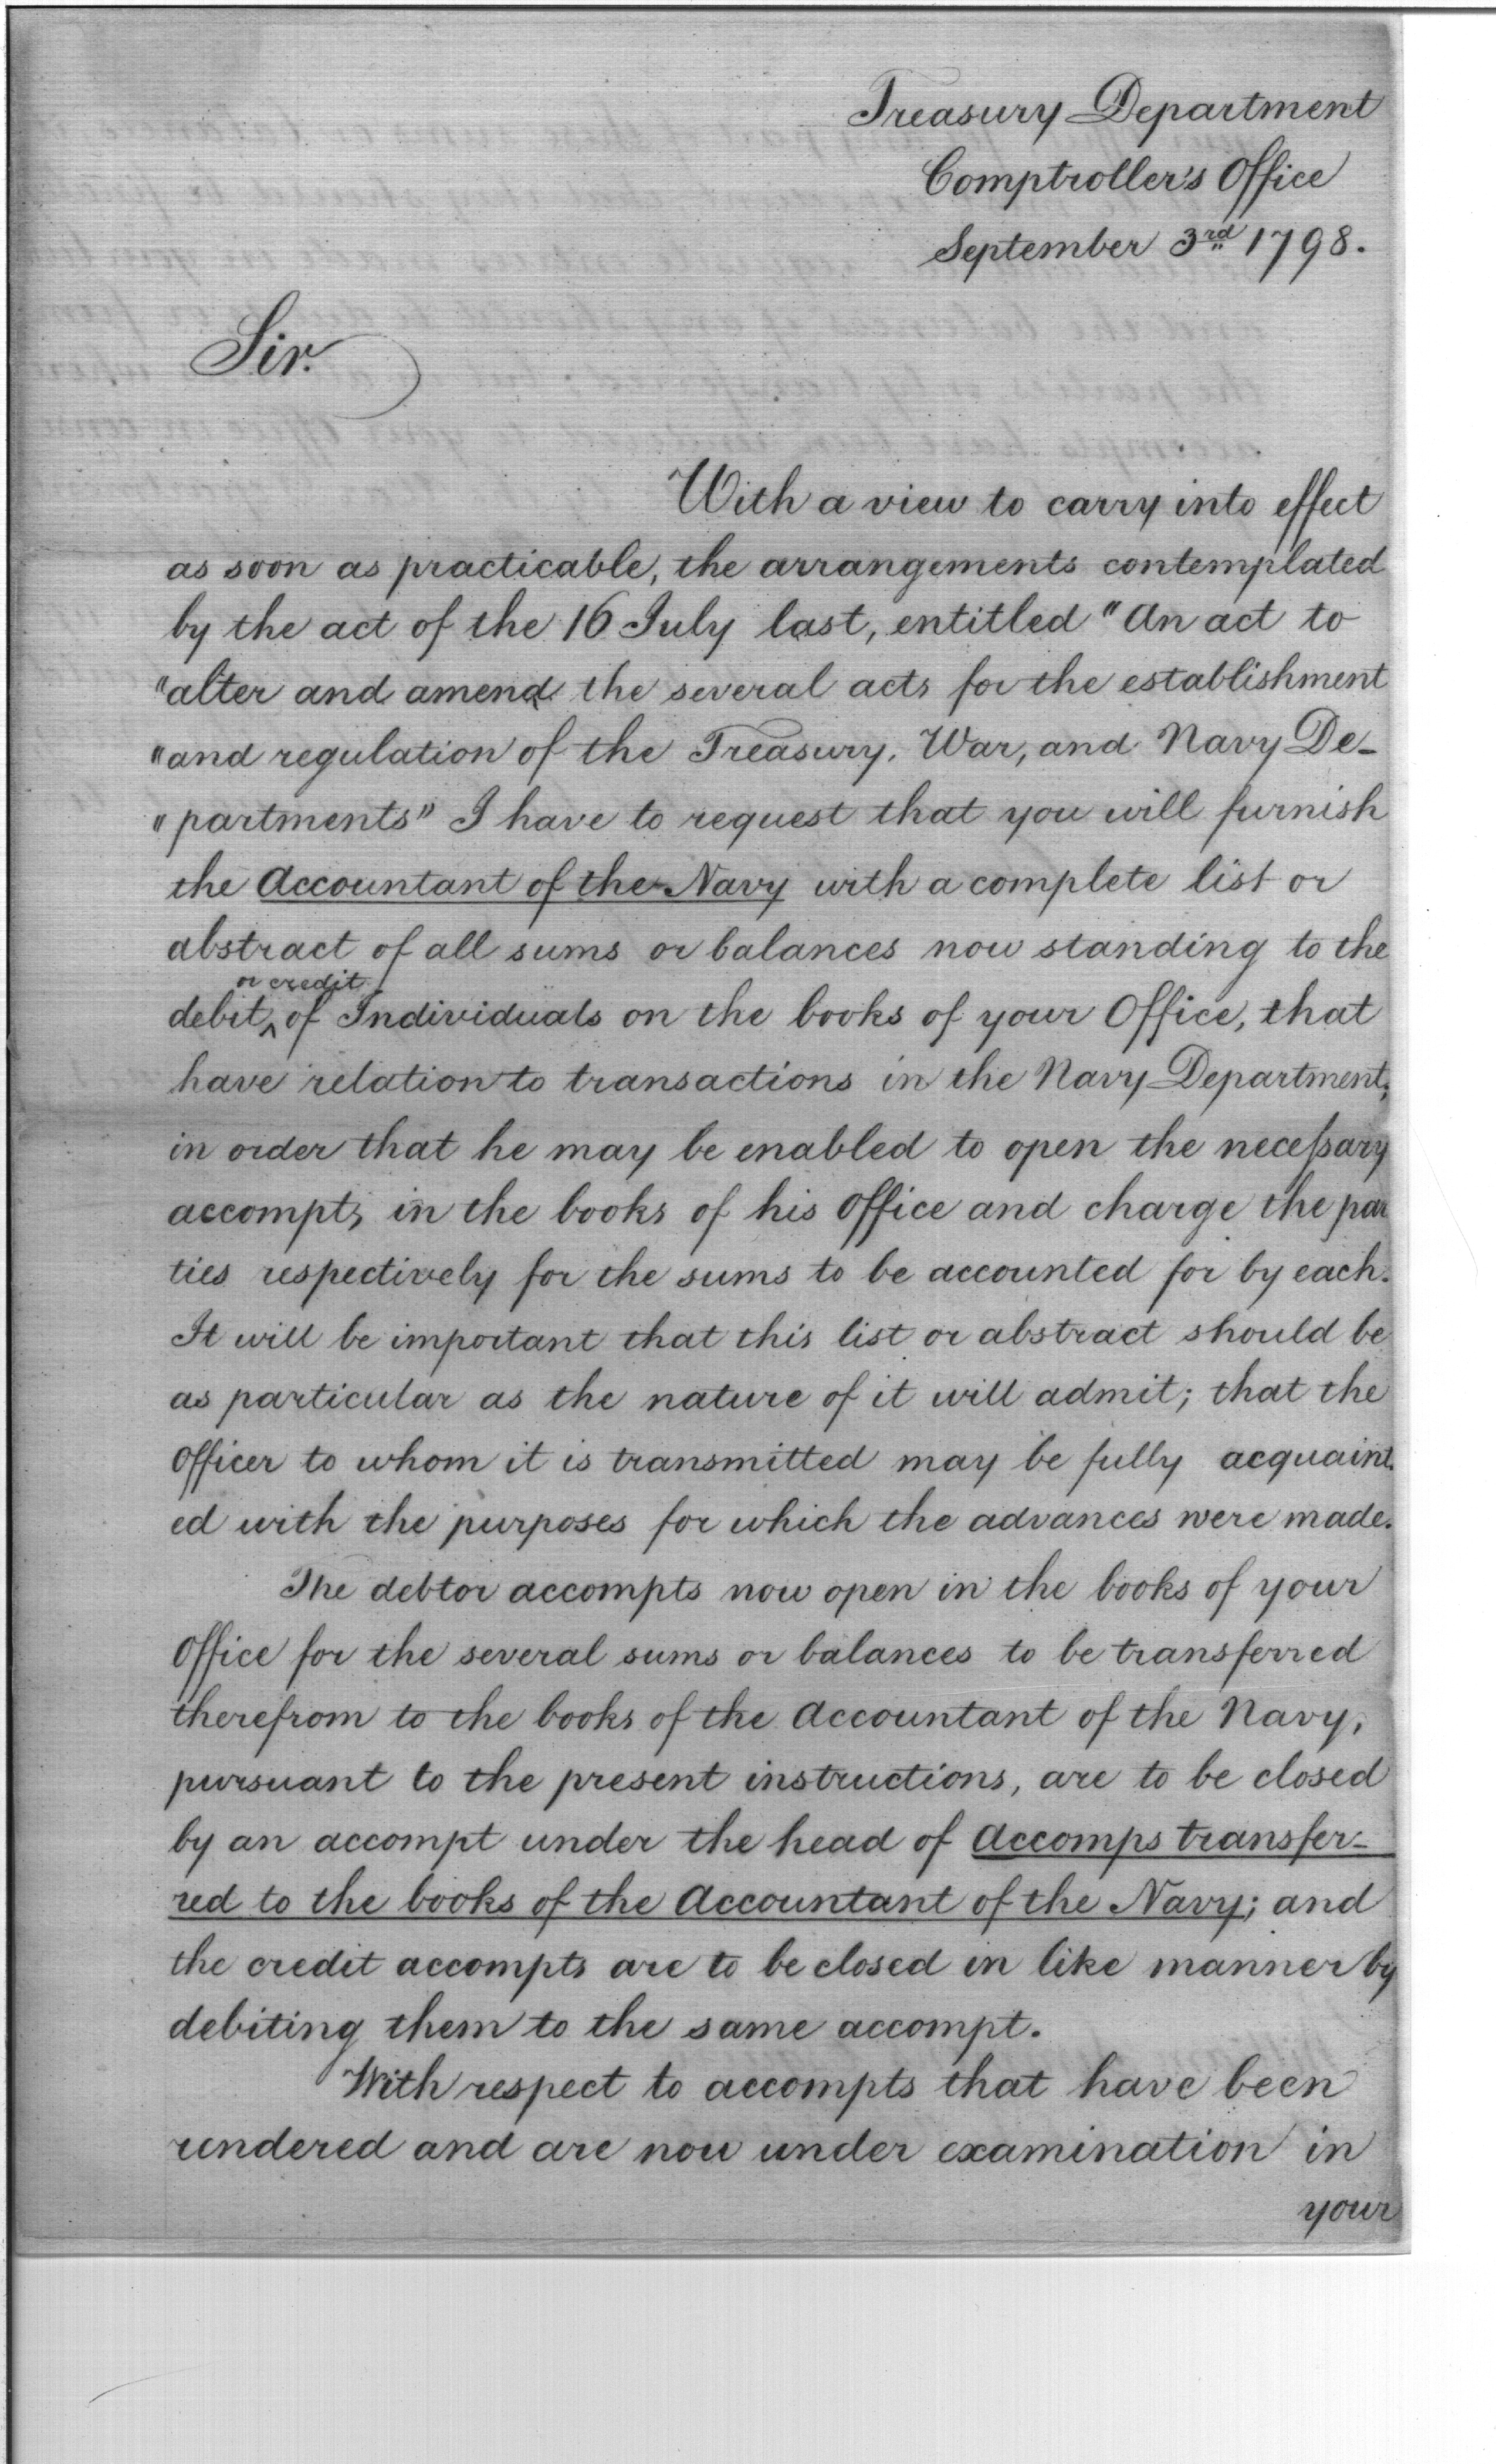 Treasury Department
Comptroller's Office
September 3rd 1798.
Sir.
With a view to carry into effect
as soon as practicable, the arrangements contemplated
by the act of the 16 July last, entitled "An act to
"alter and amend the several acts for the establishment
"and regulation of the Treasury, War, and Navy De-
"partments" I have to request that you will furnish
the Accountant of the Navy with a complete list or
abstract of all sums or balances now standing to the
or credit
debit ^ of Individuals on the books of your Office, that
have relation to transactions in the Navy Department;
in order that he may be enabled to open the necessary
accompts in the books of his Office and charge the par
ties respectively for the sums to be accounted for by each.
It will be important that this list or abstract should be
as particular as the nature of it will admit; that the
Officer to whom it is transmitted may be fully acquaint.
ed with the purposes for which the advances were made.
The debtor accompts now open in the books of your
Office for the several sums or balances to be transferred
therefrom to the books of the Accountant of the Navy,
pursuant to the present instructions, are to be closed
by an accompt under the head of Accomps transfer-
red to the books of the Accountant of the Navy; and
the credit accompts are to be closed in like manner by
debiting them to the same accompt.
With respect to accompts that have been
rendered and are now under examination in
your